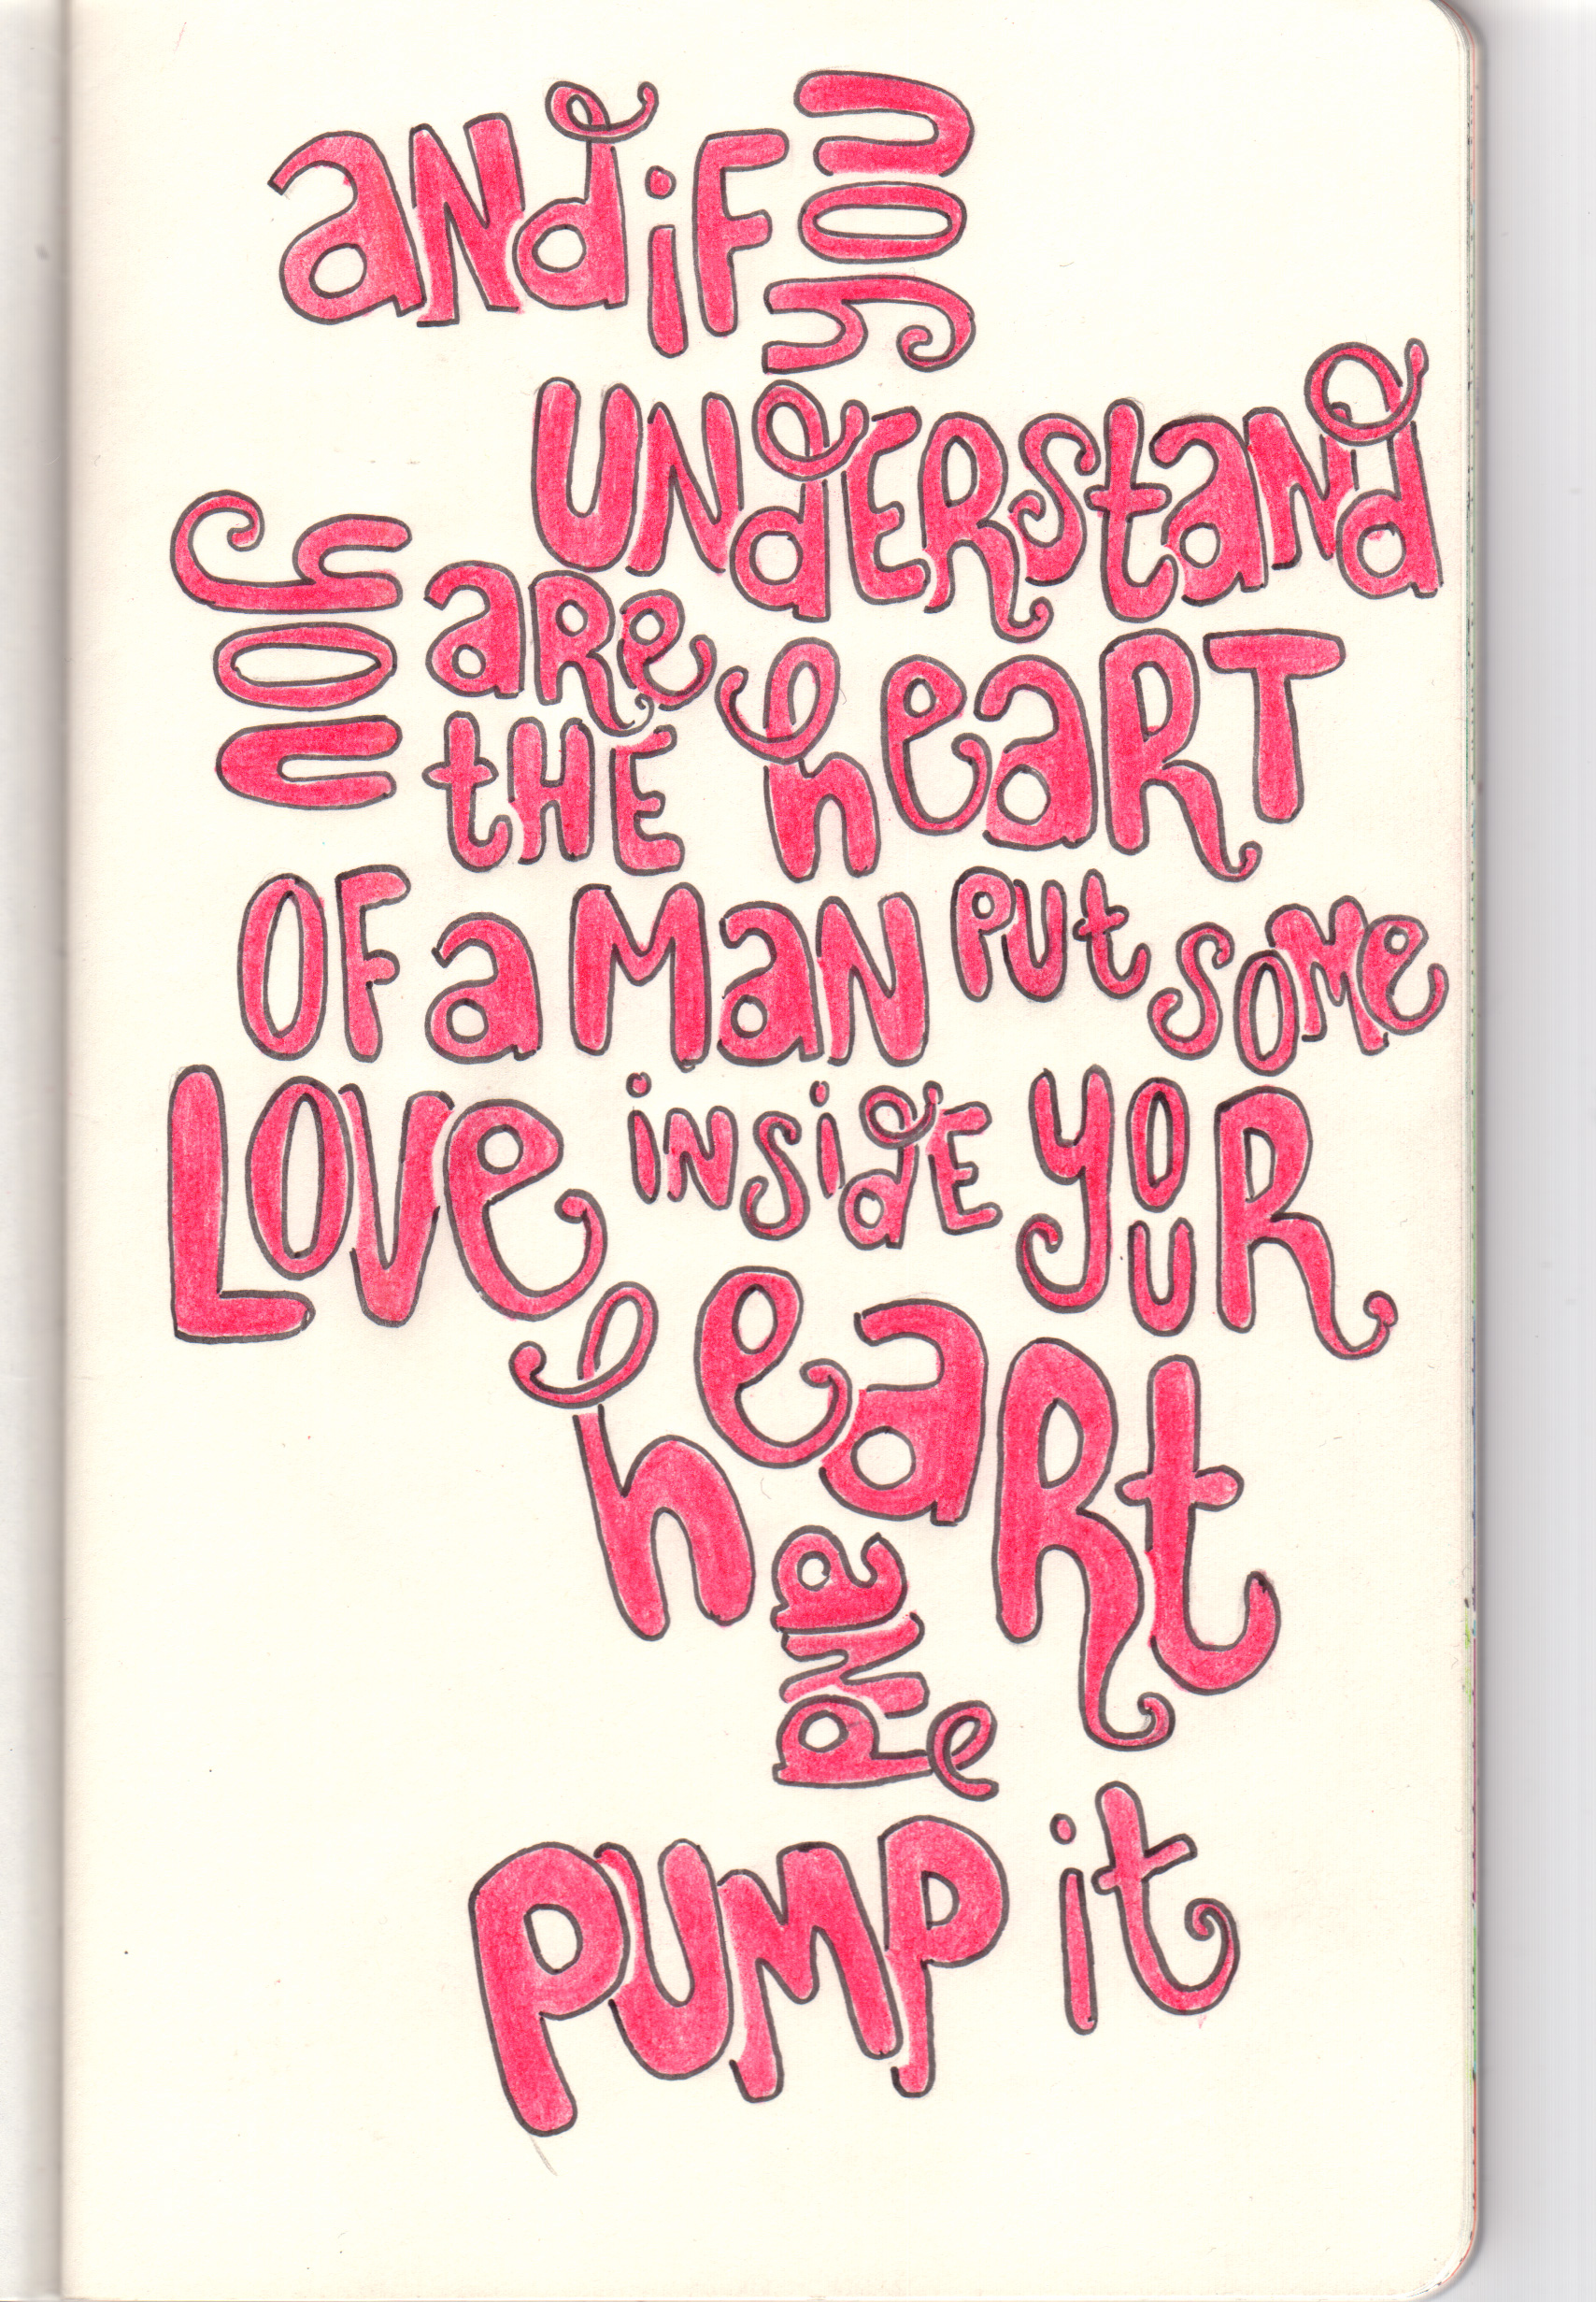 aNd iF you
UNdERstaNd
you aRe
tHE heaRT
OF a MaN PUt SOMe
LOVe iNSidE YOUR
heaRt
aNd
PUMP it